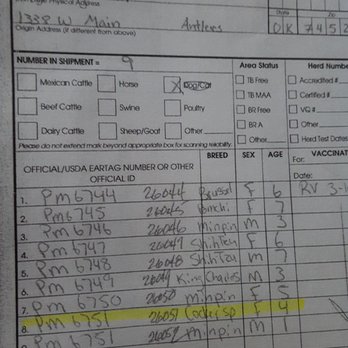 1338 W Main Antlers OK 7452
Origin Address (if different from above)
NUMBER IN SHIPMENT = 9 Area Status Herd Number
Mexican Cattle Horse X Dog/Cat TB Free Accredited #
Beef Cattle Swine Poultry TB MAA Certified #
Dairy Cattle Sheep/Goat Other BR Free VQ #
BR A Other
Please do not extend mark beyond appropriate box for scanning reliability. Other Herd Test Dates
OFFICIAL/USDA EARTAG NUMBER OR OTHER OFFICIAL ID BREED SEX AGE FOR: VACCINAT
Date:
RV 3-1
1. Pm 6744 26044 F 6
2. Pm 6745 26045 F 7
3. Pm 6746 26046 Minpin M 3
4. Pm 6747 26047 Shihtzu F 6
5. Pm 6748 26048 Shihtzu M 7
6. Pm 6749 26049 King Charles M 3
7. Pm 6750 26050 Minpin F 5
8. Pm 6751 26051 F 4
Minpin M 1